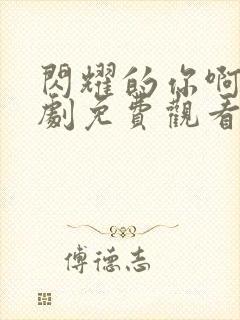 閃耀的你啊
劇免費觀看
傅德志